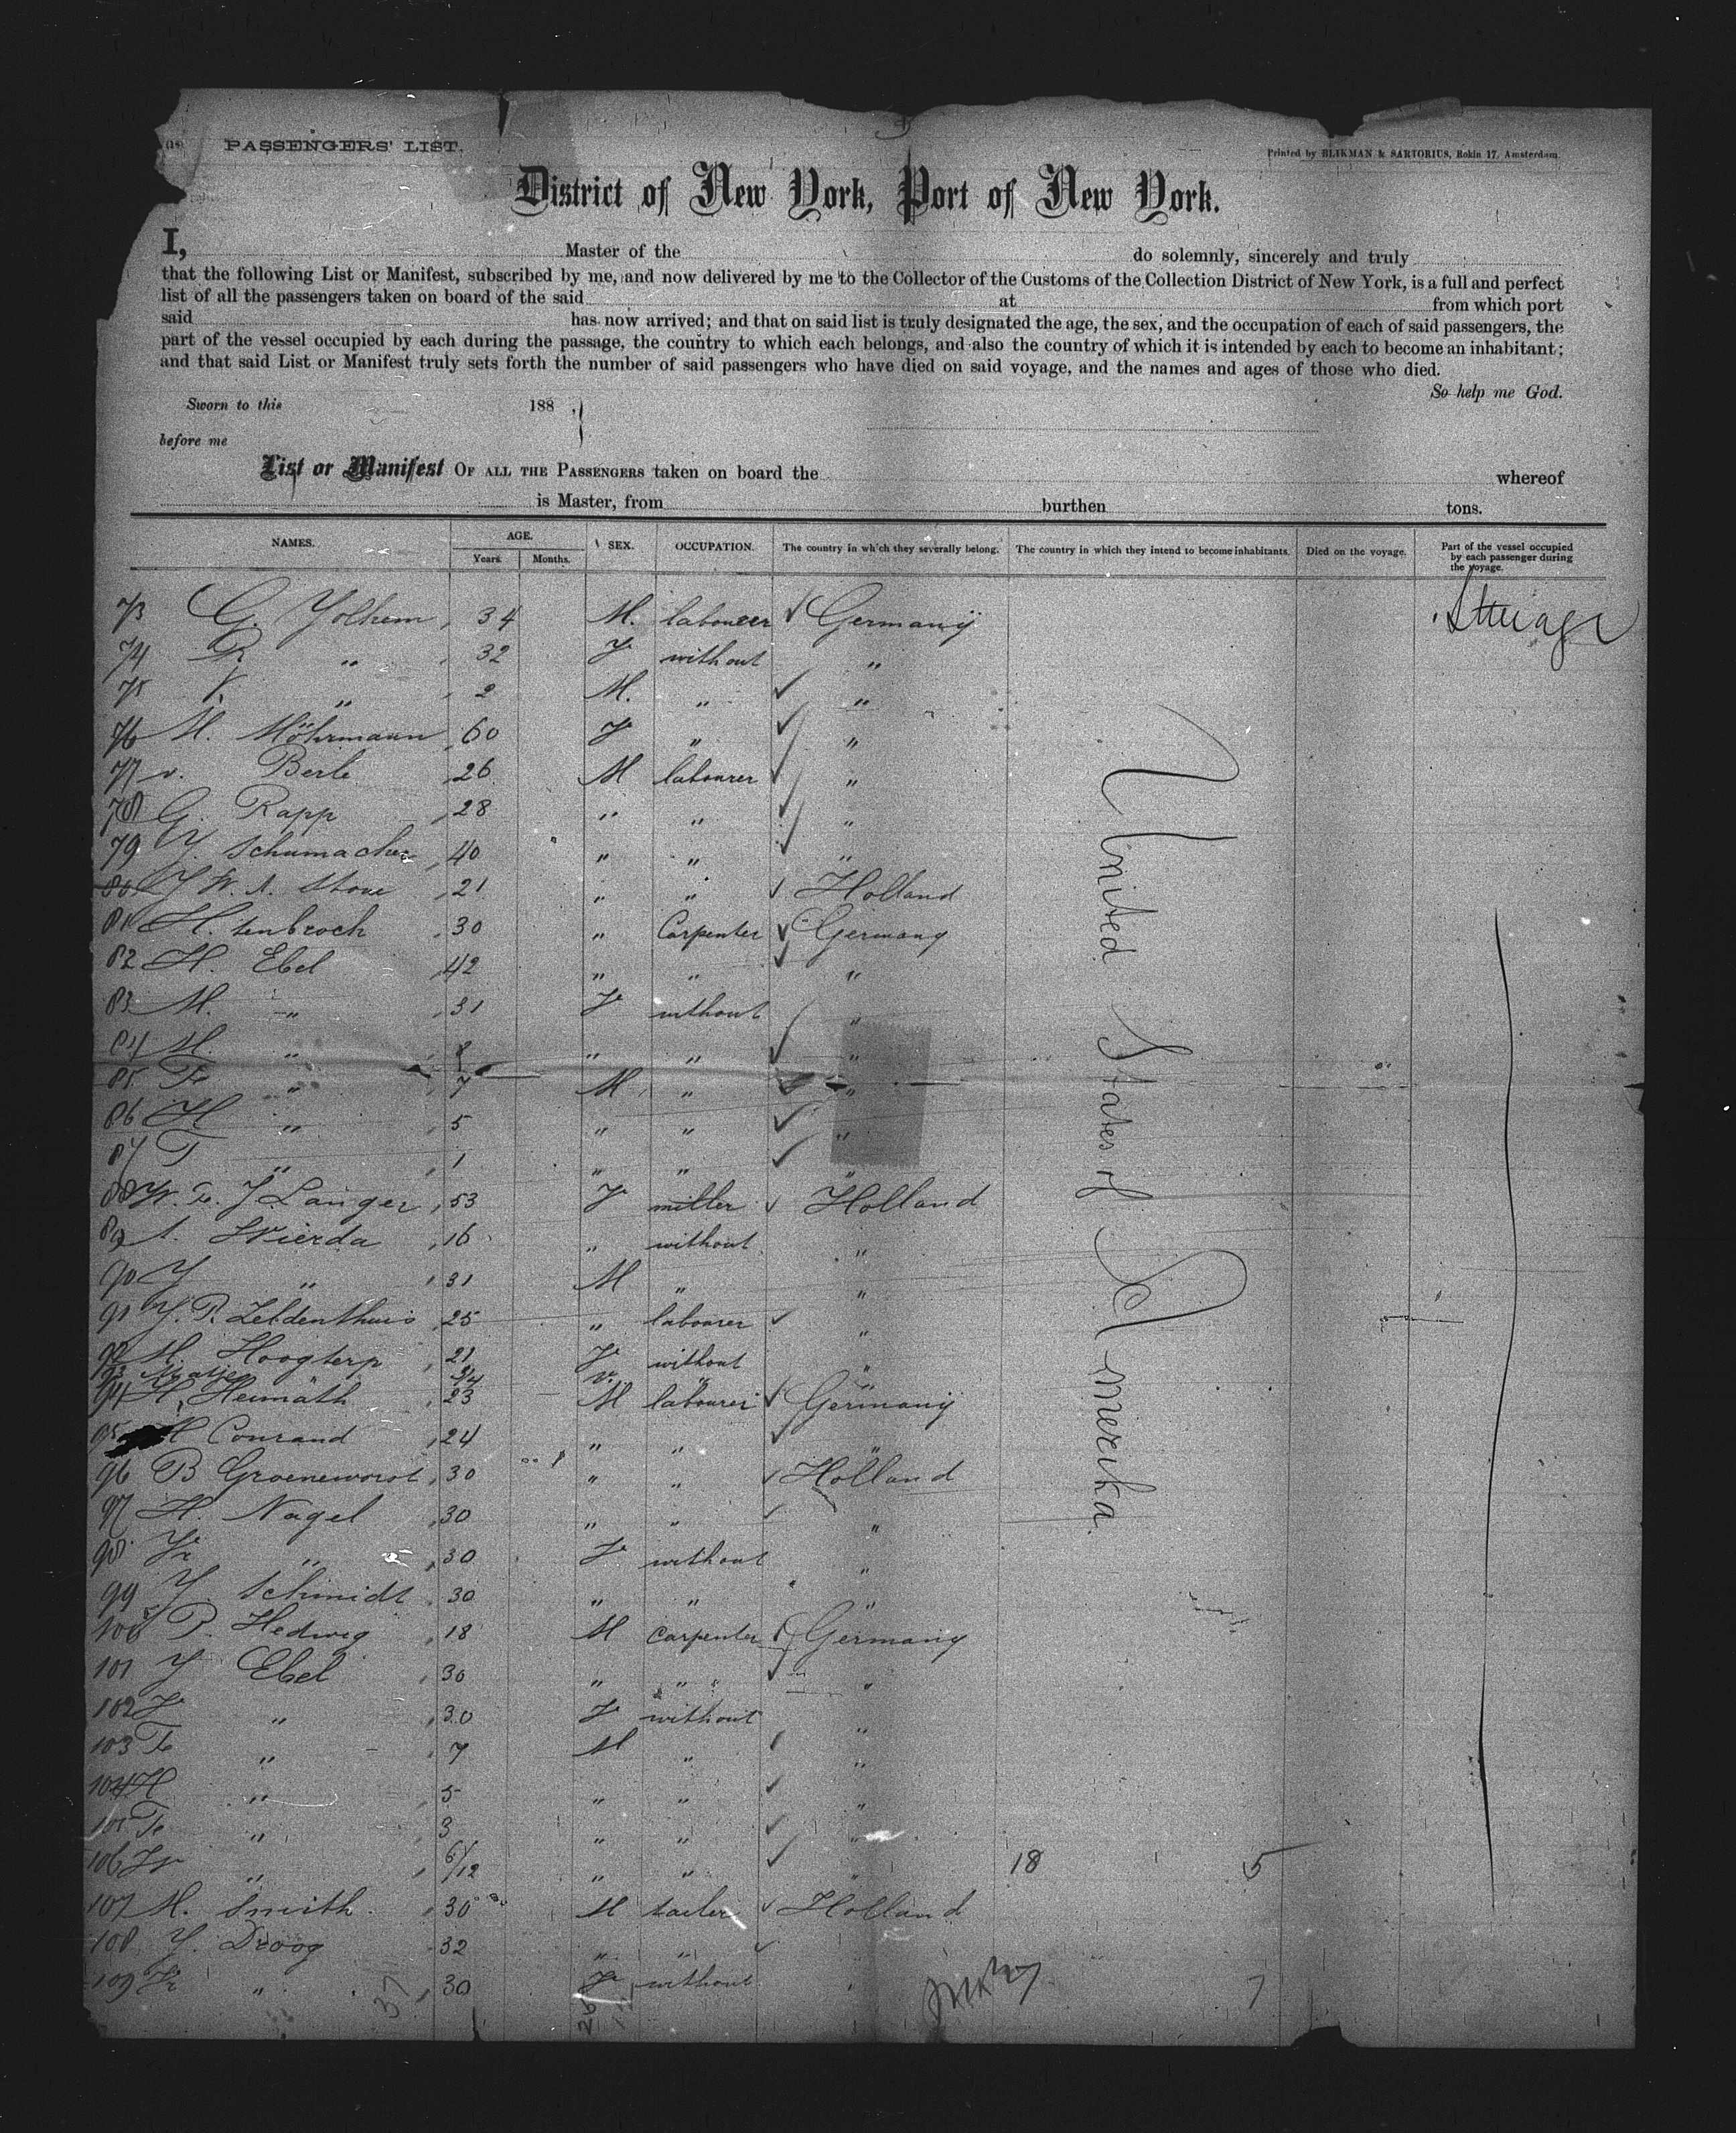 PASSENGERS' LIST.
Printed by BLIKMAN & SARTORIUS, Rokin 17, Amsterdam
District of New York, Port of New York.
I, Master of the do solemnly, sincerely and truly
that the following List or Manifest, subscribed by me, and now delivered by me to the Collector of the Customs of the Collection District of New York, is a full and perfect
list of all the passengers taken on board of the said at from which port
said has now arrived; and that on said list is truly designated the age, the sex, and the occupation of each of said passengers, the
part of the vessel occupied by each during the passage, the country to which each belongs, and also the country of which it is intended by each to become an inhabitant;
and that said List or Manifest truly sets forth the number of said passengers who have died on said voyage, and the names and ages of those who died.
So help me God.
Sworn to this 188
before me
List or Manifest OF ALL THE PASSENGERS taken on board the whereof
is Master, from burthen tons.
NAMES. AGE. Years. Months. SEX. OCCUPATION. The country in which they severally belong. The country in which they intend to become inhabitants. Died on the voyage. Part of the vessel occupied by each passenger during the voyage.
73 G. Yolhem 34 M. labourer Germany Steerage
74 " 32 F without "
75 " 2 M. " "
76 M. Möhrmann 60 F " "
77 v. Berle 26 M labourer "
78 G. Rapp 28 " " "
79 Y. Schumacher 40 " " "
80 Y W. A. Stove 21 " " Holland
81 H. tenbroch 30 " Carpenter Germany
82 H. Ebel 42 " " "
83 M. " 31 F without "
84 M. " 8 " " "
85 Fr " 7 M " "
86 H " 5 " " "
87 F " 1 " " "
88 W. Fr. J Langer 53 F miller Holland
89 A. Wierda 16 " without "
90 Y " 31 M " "
91 Y. P. Zeldenthuis 25 " labourer "
92 M. Hoogterp 21 F without "
93 Aatje 3/4 v. " "
94 H. Heimath 23 M labourer Germany
95 H Conrand 24 " " "
96 B Groeneworst 30 " " Holland
97 H. Nagel 30 " " "
98 Fr " 30 F without "
99 Y. Schmidt 30 " " "
100 P. Hedwig 18 M carpenter Germany
101 Y Ebel 30 " " "
102 F " 30 F without "
103 Fr " 7 M " "
104 H " 5 " " "
105 Fr " 3 " " "
106 W " 6/12 " " " 18 5
107 M. Smith 30 M tailer Holland
108 Y. Droog 32 " "
109 Fr " 30 F without 7
37 26
United States of America